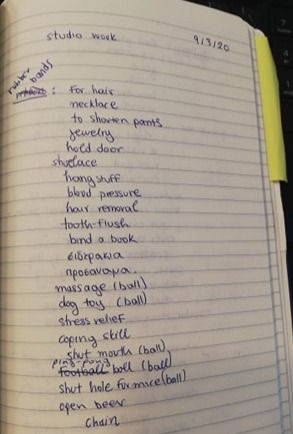 studio work 9/3/20
rubber bands : for hair
necklace
to shorten pants
jewelry
hold door
shoelace
hang stuff
blood pressure
hair removal
tooth-flush
bind a book
massage (ball)
dog toy (ball)
stress relief
coping skill
shut mouth (ball)
ping-pong
football ball (ball)
shut hole for mice (ball)
open beer
chain